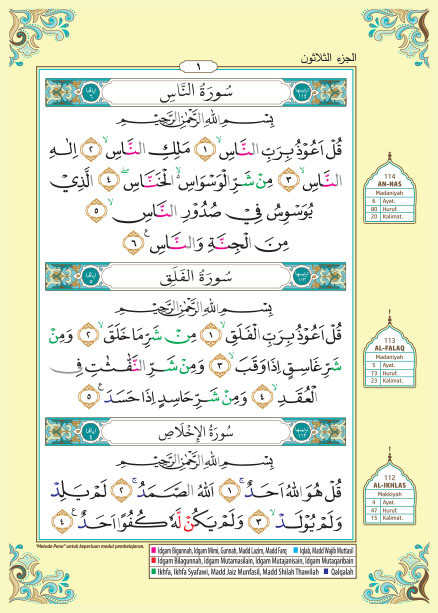 الجزء الثلاثون
١
سُورَةُ النَّاسِ
بِسْمِ اللهِ الرَّحْمٰنِ الرَّحِيْمِ
قُلْ اَعُوْذُ بِرَبِّ النَّاسِۙ ١ مَلِكِ النَّاسِۙ ٢ اِلٰهِ
النَّاسِۙ ٣ مِنْ شَرِّ الْوَسْوَاسِ ەۙ الْخَنَّاسِۖ ٤ الَّذِيْ
يُوَسْوِسُ فِيْ صُدُوْرِ النَّاسِۙ ٥
مِنَ الْجِنَّةِ وَالنَّاسِ ࣖ ٦
114
AN-NAS
Madaniyah
6 Ayat.
80 Huruf.
20 Kalimat.
سُورَةُ الفَلَقِ
بِسْمِ اللهِ الرَّحْمٰنِ الرَّحِيْمِ
قُلْ اَعُوْذُ بِرَبِّ الْفَلَقِۙ ١ مِنْ شَرِّ مَا خَلَقَۙ ٢ وَمِنْ
شَرِّ غَاسِقٍ اِذَا وَقَبَۙ ٣ وَمِنْ شَرِّ النَّفّٰثٰتِ فِى
الْعُقَدِۙ ٤ وَمِنْ شَرِّ حَاسِدٍ اِذَا حَسَدَ ࣖ ٥
113
AL-FALAQ
Madaniyah
5 Ayat.
73 Huruf.
23 Kalimat.
سُورَةُ الإِخْلَاصِ
بِسْمِ اللهِ الرَّحْمٰنِ الرَّحِيْمِ
قُلْ هُوَ اللهُ اَحَدٌۚ ١ اَللهُ الصَّمَدُۚ ٢ لَمْ يَلِدْ
وَلَمْ يُوْلَدْۙ ٣ وَلَمْ يَكُنْ لَّهٗ كُفُوًا اَحَدٌ ࣖ ٤
112
AL-IKHLAS
Makkiyah
4 Ayat.
47 Huruf.
15 Kalimat.
"Metode Pena" untuk keperluan modul pembelajaran.
Idgam Bigunnah, Idgam Mimi, Gunnah, Madd Lazim, Madd Farq Iqlab, Madd Wajib Muttasil
Idgam Bilagunnah, Idgam Mutamasilain, Idgam Mutajanisain, Idgam Mutaqaribain
Ikhfa, Ikhfa Syafawi, Madd Jaiz Munfasil, Madd Shilah Thawilah Qalqalah